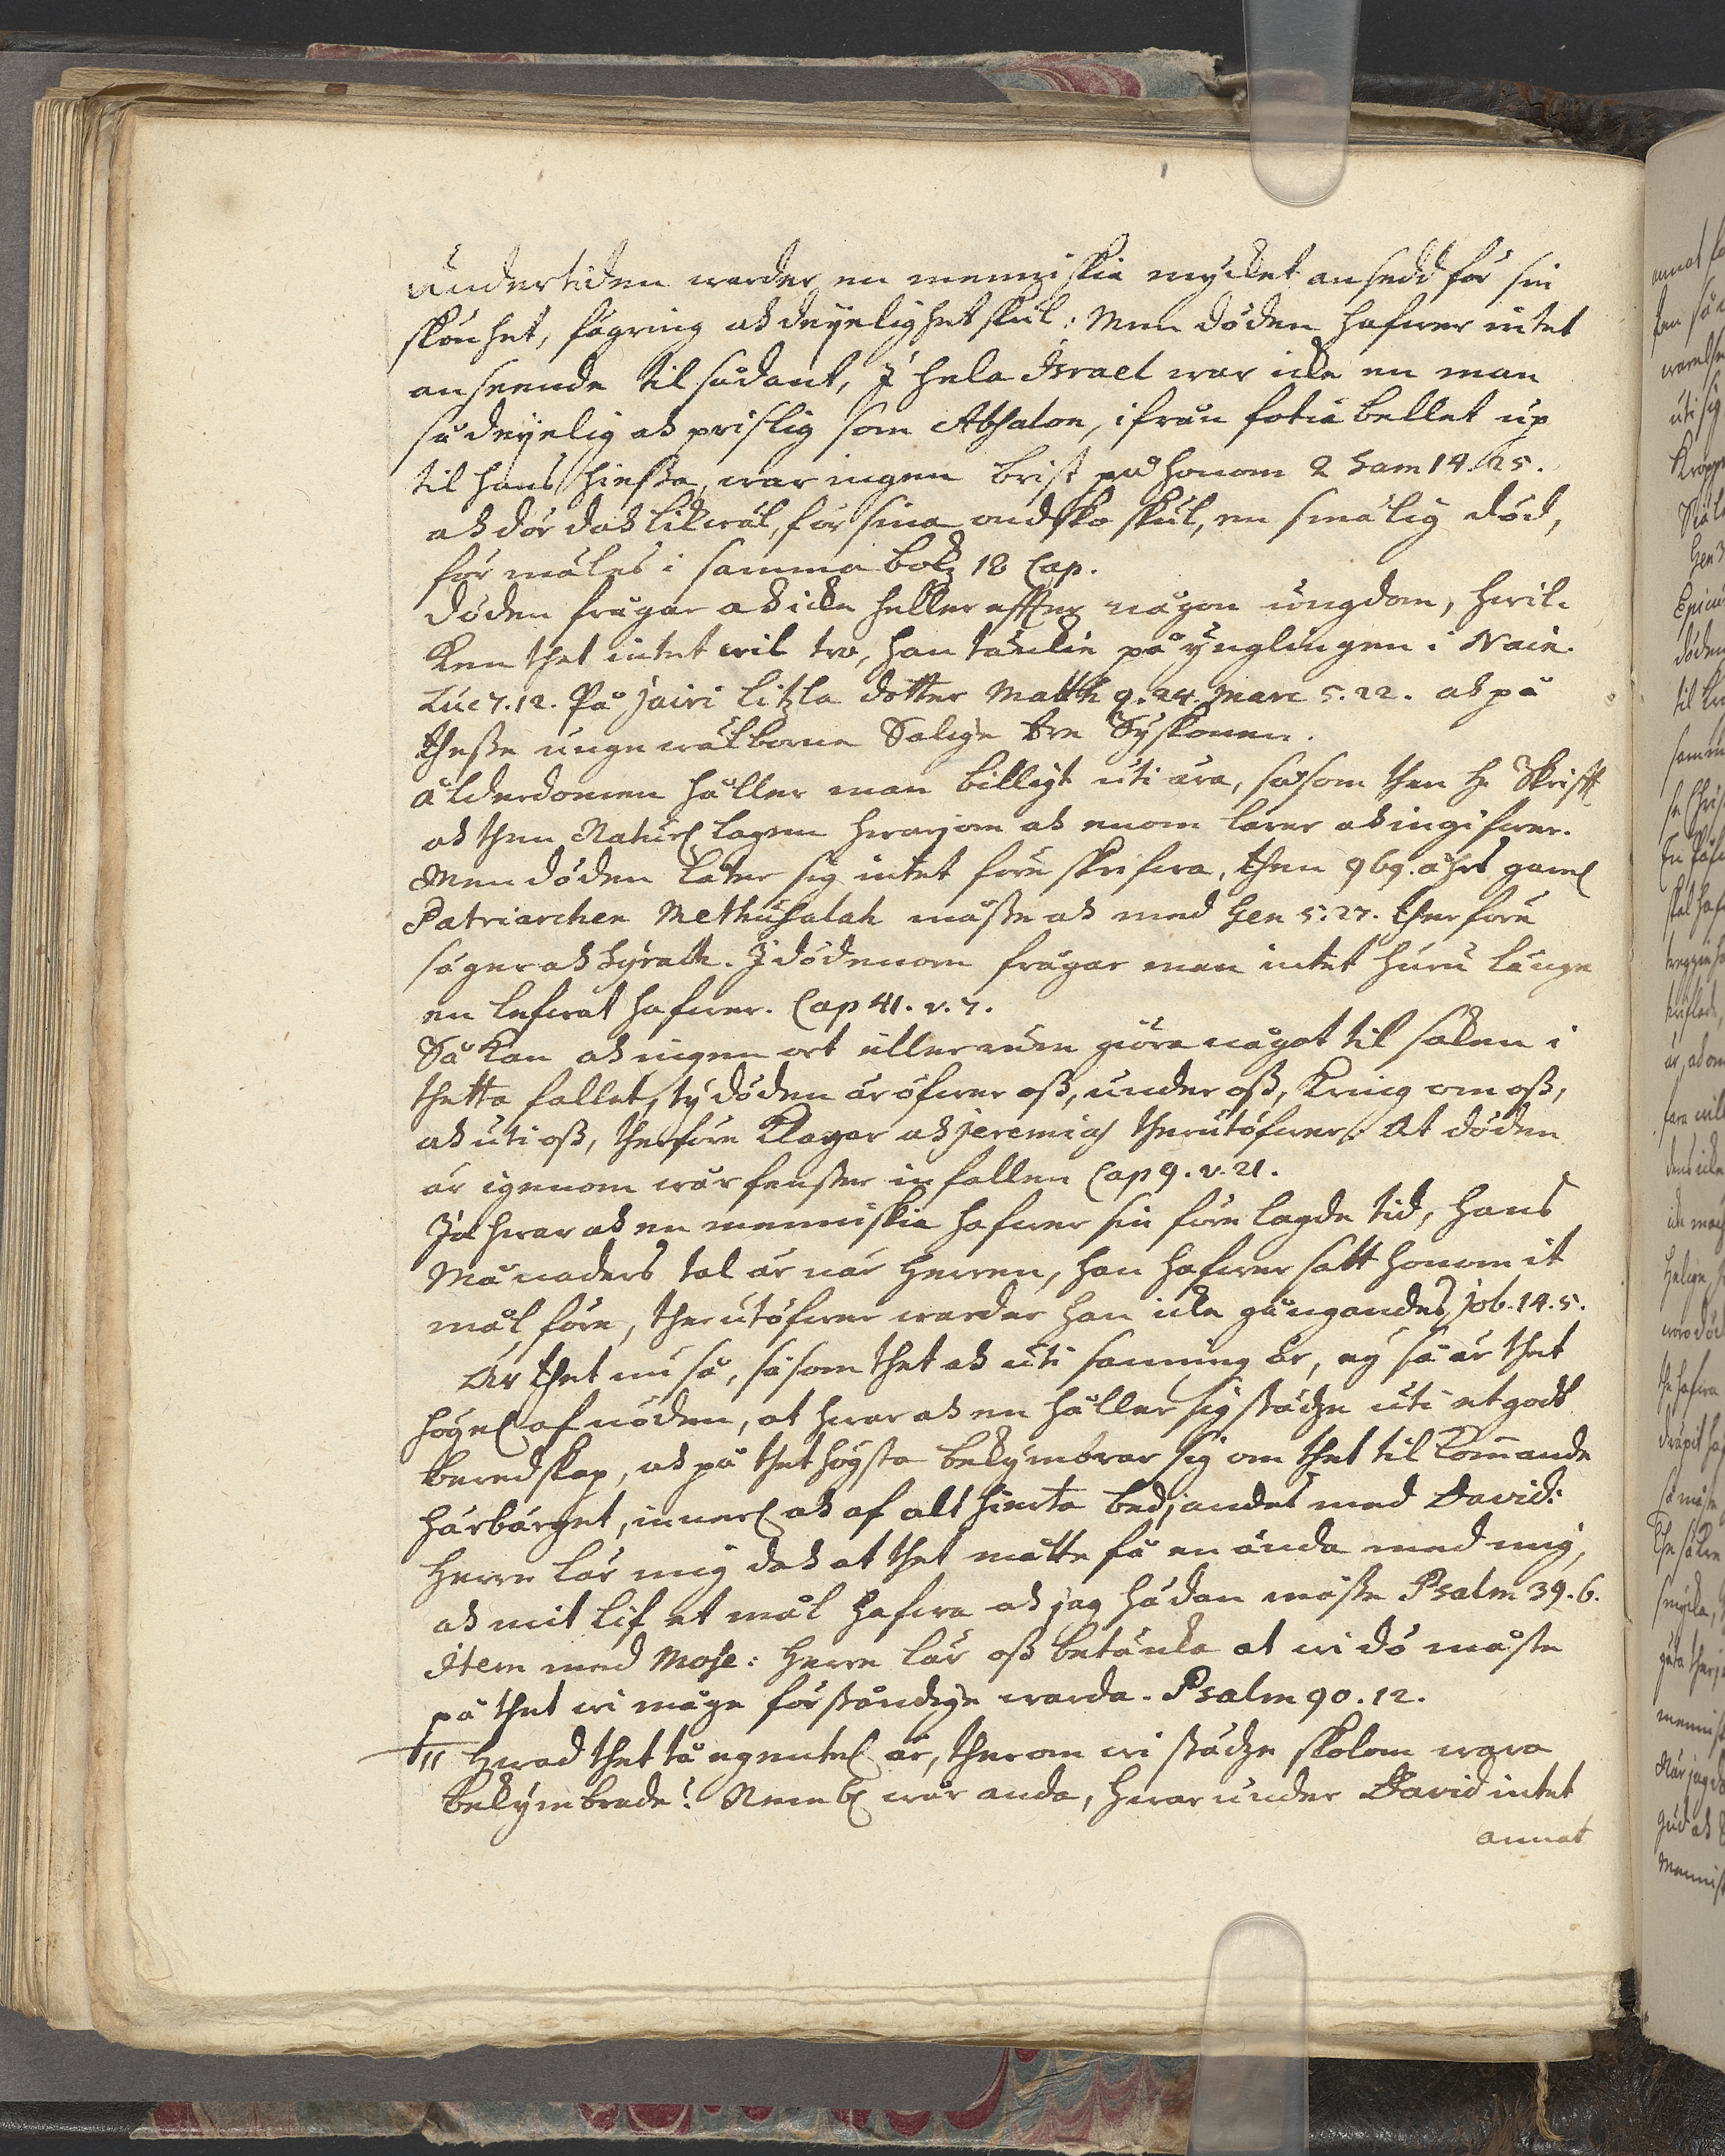 Undertiden warder en menniskia mycket ansedd för sin
skönhet, fägring ok deyelighet skul: Men döden hafwer intet
anseende til sådant, J hela Israel war icke en man
så deyelig ok prislig som Absalon, ifrån fotiabellet up
til hans hiessa, war ingen brist på honom 2 Sam 14. 25.
ok dör dok likwäl, för sina ondsko skul, en smälig död,
förmäles i samma bok 18 Cap.
Döden frågar ok icke heller effter någon ungdom, hwil-
ken thet intet wil tro, han täncke på ynglingen i Nain.
Luc 7. 12. På Jairi litzla dotter Matth 9. 24. Marc 5. 22. ok på
thesse unge wälborne Salige tre Syskonen.
Ålderdomen håller man billigt uti ära, såsom then H. Skrifft
ok then Naturl lagen hwarjom ok enom lärer ok ingifwer.
Men döden låter sig intet före skrifwa, then 969. åhrs gaml
Patriarchen Methusalah måste ok med Gen 5. 27. therföre
säger ok Syrach. J dödenom frågar man intet huru länge
en lefwat hafwer. Cap 41. v. 7.
Så kan ok ingen ort eller rum giöra något til saken i
thetta fallet, ty döden är öfwer oss, under oss, kring om oss,
ok uti oss, therföre klagar ok Jeremias therutöfwer: At döden
är igenom wår fenster infallen Cap 9. v. 21.
Ja hwar ok en menniskia hafwer sin förelagde tid, hans
Månaders tal är när Herren, han hafwer satt honom it
mål före, therutöfwer warder han icke gångandes Job. 14. 5.
Är thet nu så, såsom thet ok uti sanning är, ey så är thet
högel af nöden, at hwar ok en håller sig städze uti et godt
beredskap, ok på thet högsta bekymbrar sig om thet tilkommande
härbärget, innerl ok af alt hierta bedjandes med David:
Herre lär mig dok at thet måtte få en ända med mig,
ok mit lif et mål hafwa ok jag hädan måste Psalm 39. 6.
Item med Mose: Herre lär oss betäncka at wi dö måste
på thet wi måge förståndige warda. Psalm 90. 12.
II Hwad thet tå egentel är, therom wi städze skolom wara
bekymbrade! Neml wår anda, hwarunder David intet
annat